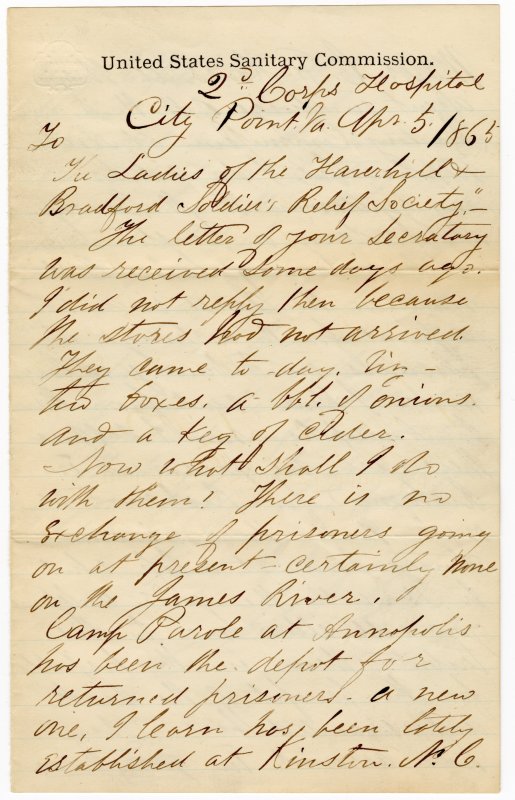 United States Sanitary Commission.
2d Corps Hospital
City Point. Va. Apr. 5. 1865
To
The Ladies of the Haverhill &
Bradford Soldier's Relief Society,"–
The letter of your Secratary
was received some days ago.
I did not reply then because
the stores had not arrived.
They came to-day. Viz–
two boxes. a bbl. of onions.
and a keg of cider.
Now what shall I do
with them! There is no
exchange of prisoners going
on at present – certainly none
on the James River.
Camp Parole at Annopolis
has been the depot for
returned prisoners. a new
one, I learn has been lately
established at Kinston. N. C.